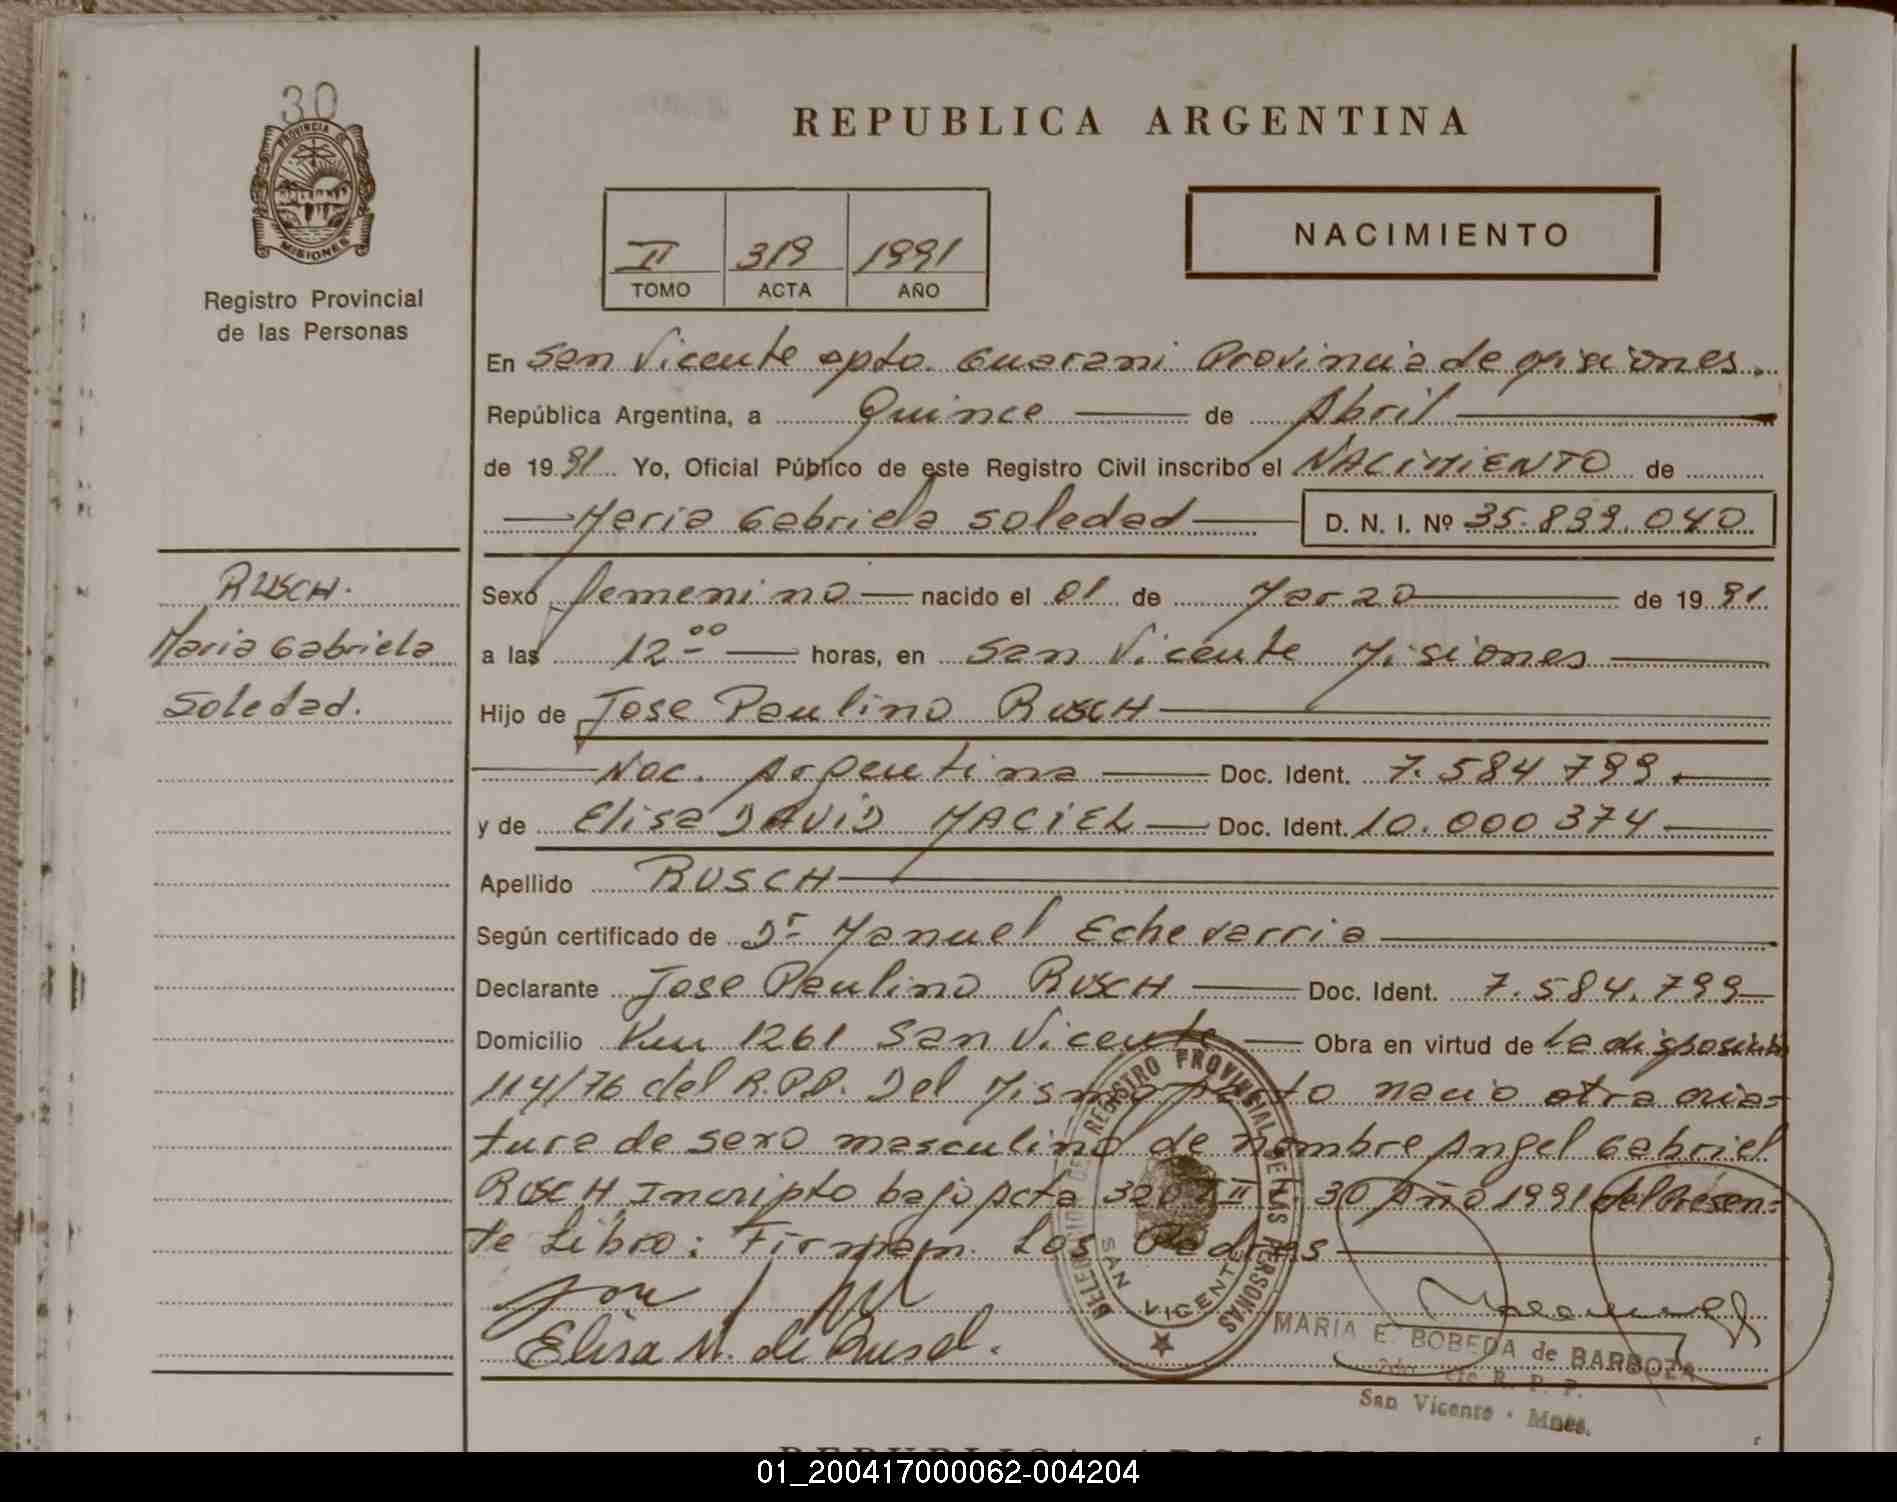 30
PROVINCIA
MISIONES
Registro Provincial
de las Personas
REPUBLICA ARGENTINA
II 319 1991
TOMO ACTA AÑO
NACIMIENTO
En San Vicente Dpto. Guarani Provincia de Misiones.
República Argentina, a Quince de Abril
de 1991 Yo, Oficial Público de este Registro Civil inscribo el NACIMIENTO de
Maria Gabriela Soledad D. N. I. Nº 35.899.040
RUSCH.
Maria Gabriela
Soledad.
Sexo femenino nacido el 01 de Marzo de 1991
a las 12 00 horas, en San Vicente Misiones
Hijo de Jose Paulino RUSCH
Nac. Argentina Doc. Ident. 7.584 799.
y de Elisa DAVID MACIEL Doc. Ident. 10.000 374
Apellido RUSCH
Según certificado de Dr Manuel Echevarria
Declarante Jose Paulino RUSCH Doc. Ident. 7.584.799
Domicilio Km 1261 San Vicente Obra en virtud de la disposición
114/76 del R.P.P. Del Mismo parto nacio otra cria-
tura de sexo masculino de nombre Angel Gabriel
RUSCH Incripto bajo Acta 320 II 30 Año 1991 del Presen-
te Libro: Firman Los Padres
Elisa M. de Rusch.
REGISTRO PROVINCIAL DE LAS PERSONAS
SAN VICENTE
MARIA E. BOBEDA de BARBOZA
R. P. P.
San Vicente - Mnes.
REPUBLICA ARGENTINA
01_200417000062-004204